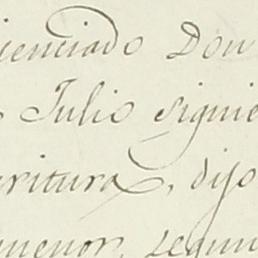 icenciado Don
Julio siguie
critura, dijo
menor, segun